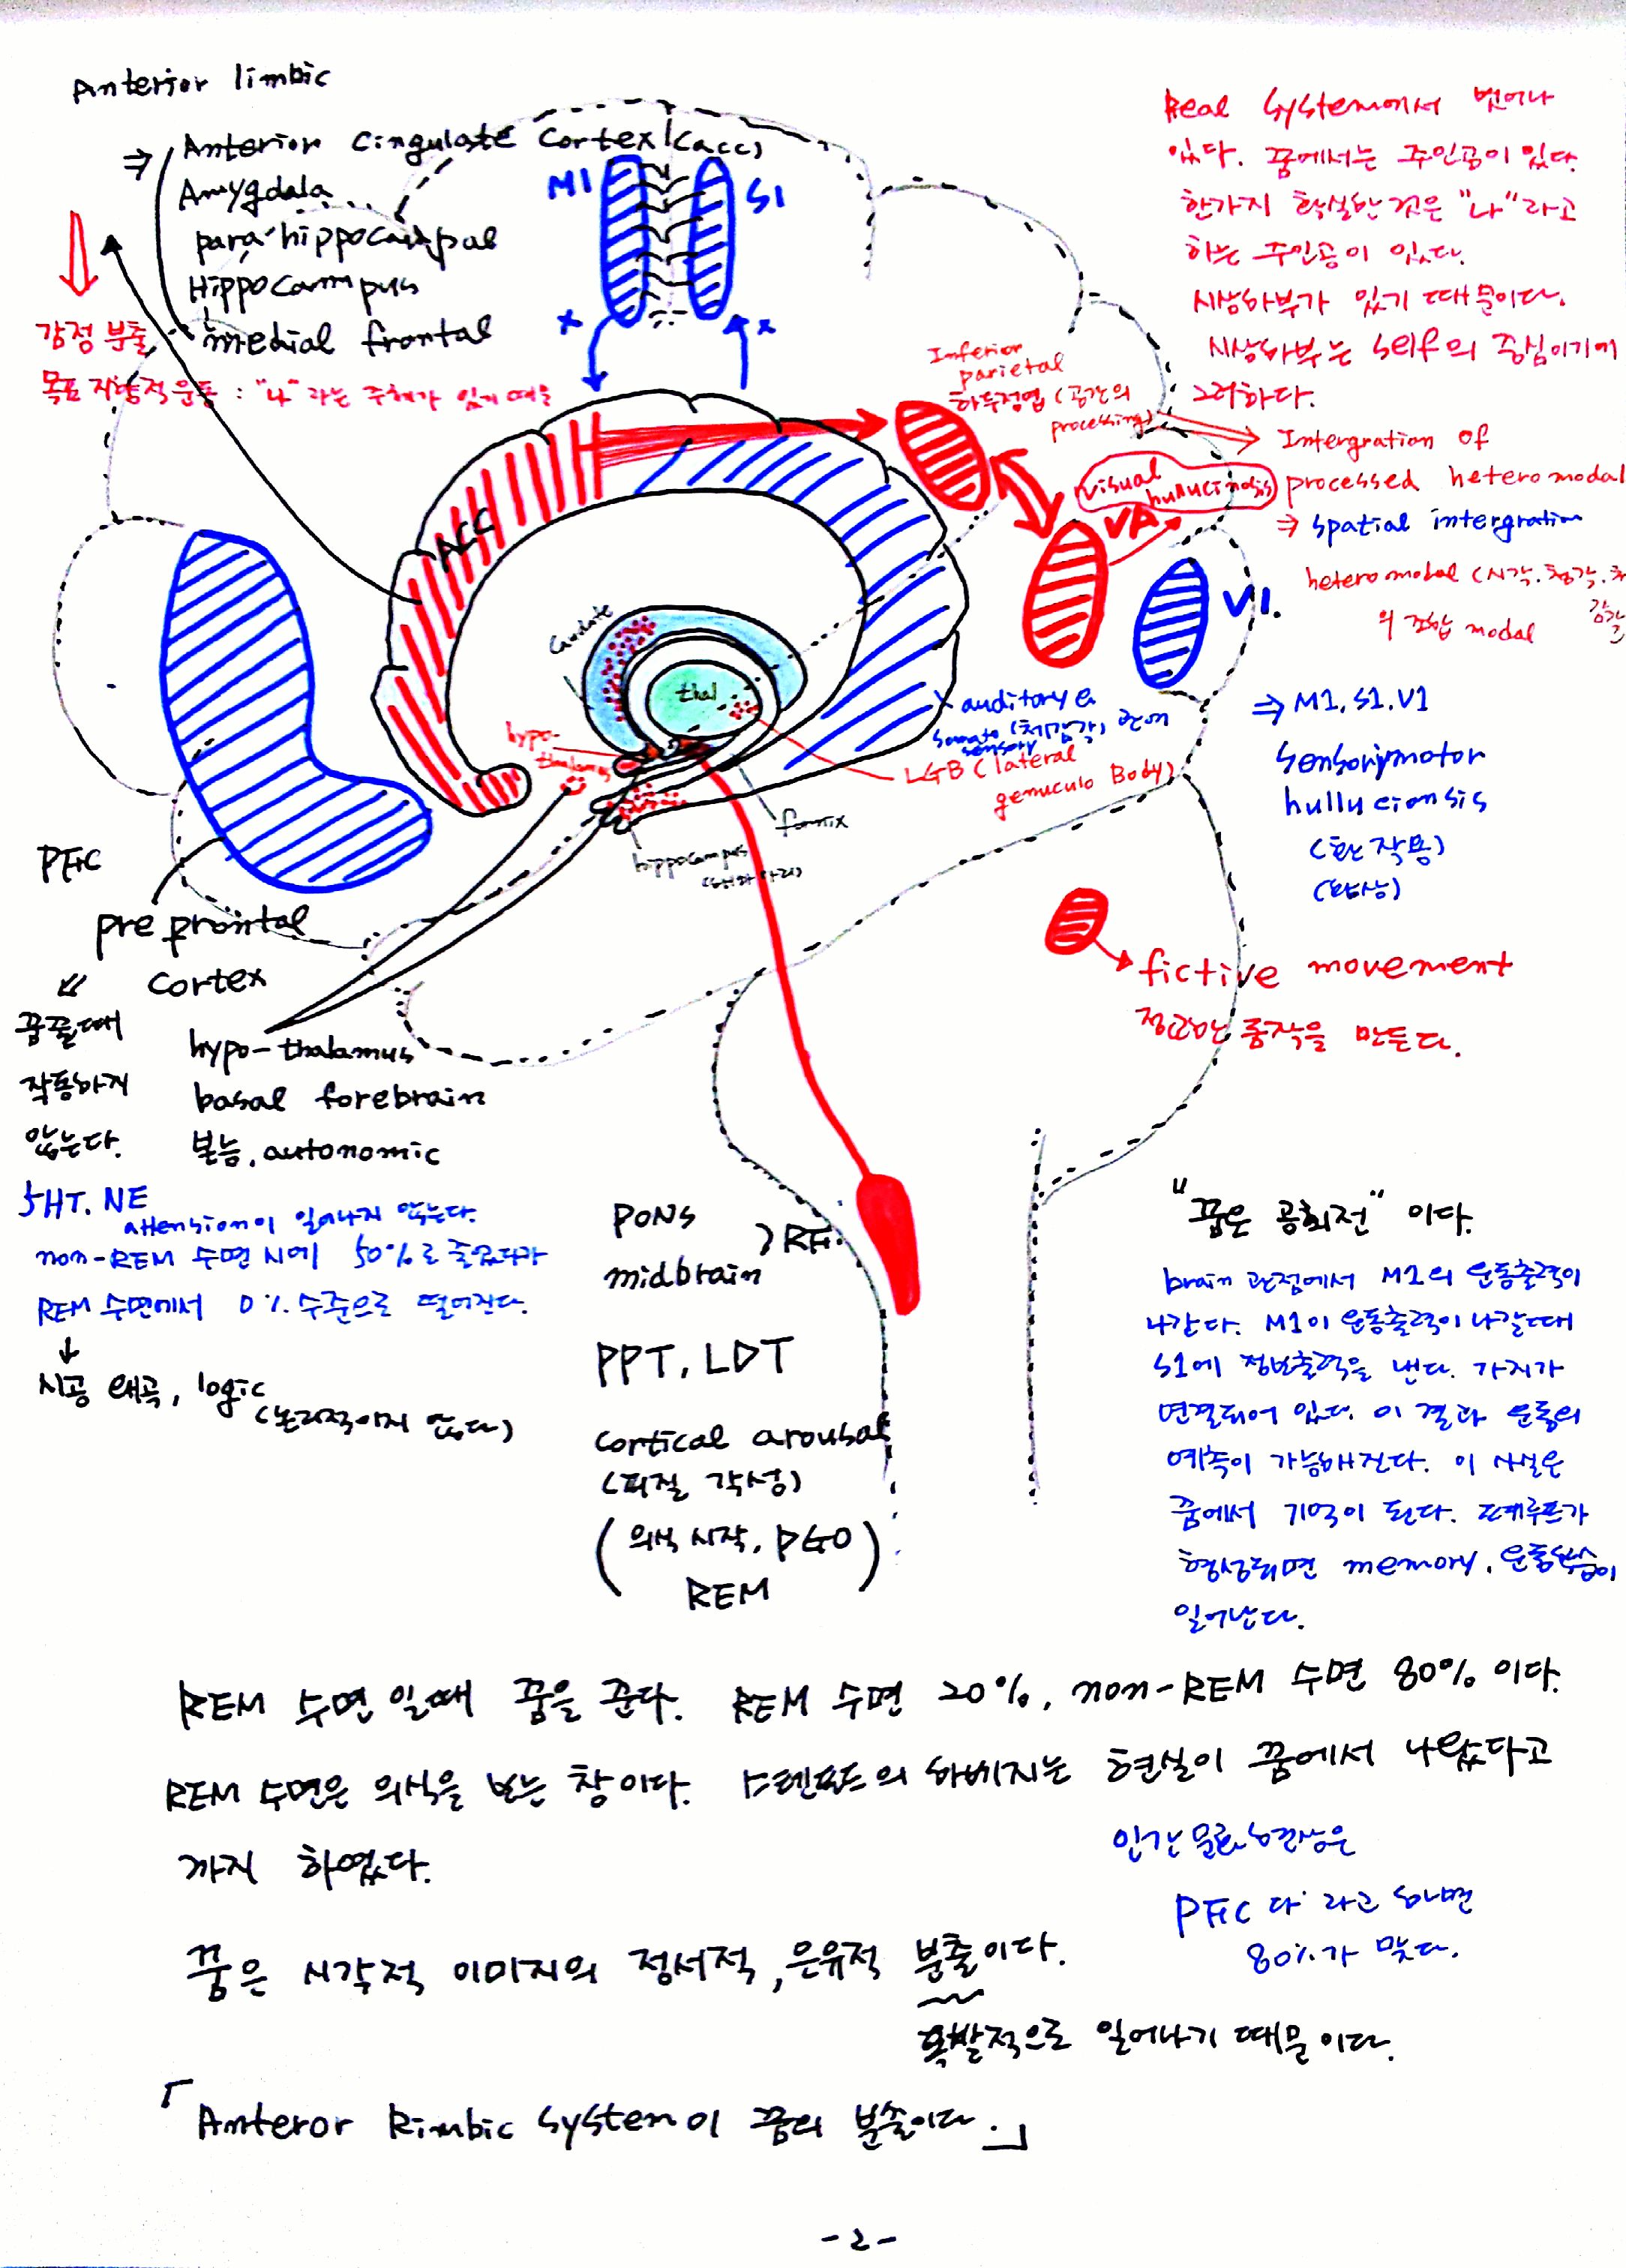 Anterior limbic
⇒ Anterior cingulate cortex (acc)
Amygdala
para-hippocampal
Hippocampus
medial frontal
감정 분출
목표 지향적 운동 : "나"라는 주체가 있기 때문
M1
S1
x
x
Real system에서 벗어나
있다. 꿈에서는 주인공이 있다.
한가지 확실한 것은 "나"라고
하는 주인공이 있다.
시상하부가 있기 때문이다.
시상하부는 self의 중심이기에
그러하다.
Inferior
parietal
하두정엽 (공간의
processing)
⇒ Intergration of
processed heteromodal
⇒ spatial intergration
heteromodal (시각.청각.
의 조합 modal
visual
hullucinosis
VA
V1.
ACC
caudate
thal
hypo-
thalamus
x auditory &
somato (체감각) 관여
sensory
LGB (lateral
genuculo Body)
fornix
hippocampus
⇒ M1. S1. V1
sensorymotor
hullucionsis
(환 작용)
(환상)
PFC
prefrontal
cortex
꿈꿀때
작동하지
않는다.
hypo-thalamus
basal forebrain
본능. autonomic
fictive movement
정교한 동작을 만든다.
5HT. NE
attension이 일어나지 않는다.
non-REM 수면시에 50%로 줄었다가
REM 수면에서 0% 수준으로 떨어진다.
↓
시공 왜곡, logic
(논리적이지 않다)
PONS
midbrain
> RF
PPT, LDT
cortical arousal
(피질 각성)
(의식 시작, PGO)
REM
"꿈은 공회전" 이다.
brain 관점에서 M1의 운동출력이
나간다. M1이 운동출력이 나갈때
S1에 정보출력을 낸다. 가지가
연결되어 있다. 이 결과 운동의
예측이 가능해진다. 이 사실은
꿈에서 기억이 된다. 폐루프가
형성되면 memory. 운동학습이
일어난다.
REM 수면 일때 꿈을 꾼다. REM 수면 20%, non-REM 수면 80% 이다.
REM 수면은 의식을 보는 창이다. 스텐포드의 하베지는 현실이 꿈에서 나왔다고
까지 하였다.
인간
PFC 다 라고 하면
80%가 맞다.
꿈은 시각적 이미지의 정서적, 은유적 분출이다.
폭발적으로 일어나기 때문이다.
「Anteror Rimbic system이 꿈의 분출이다.」
-2-